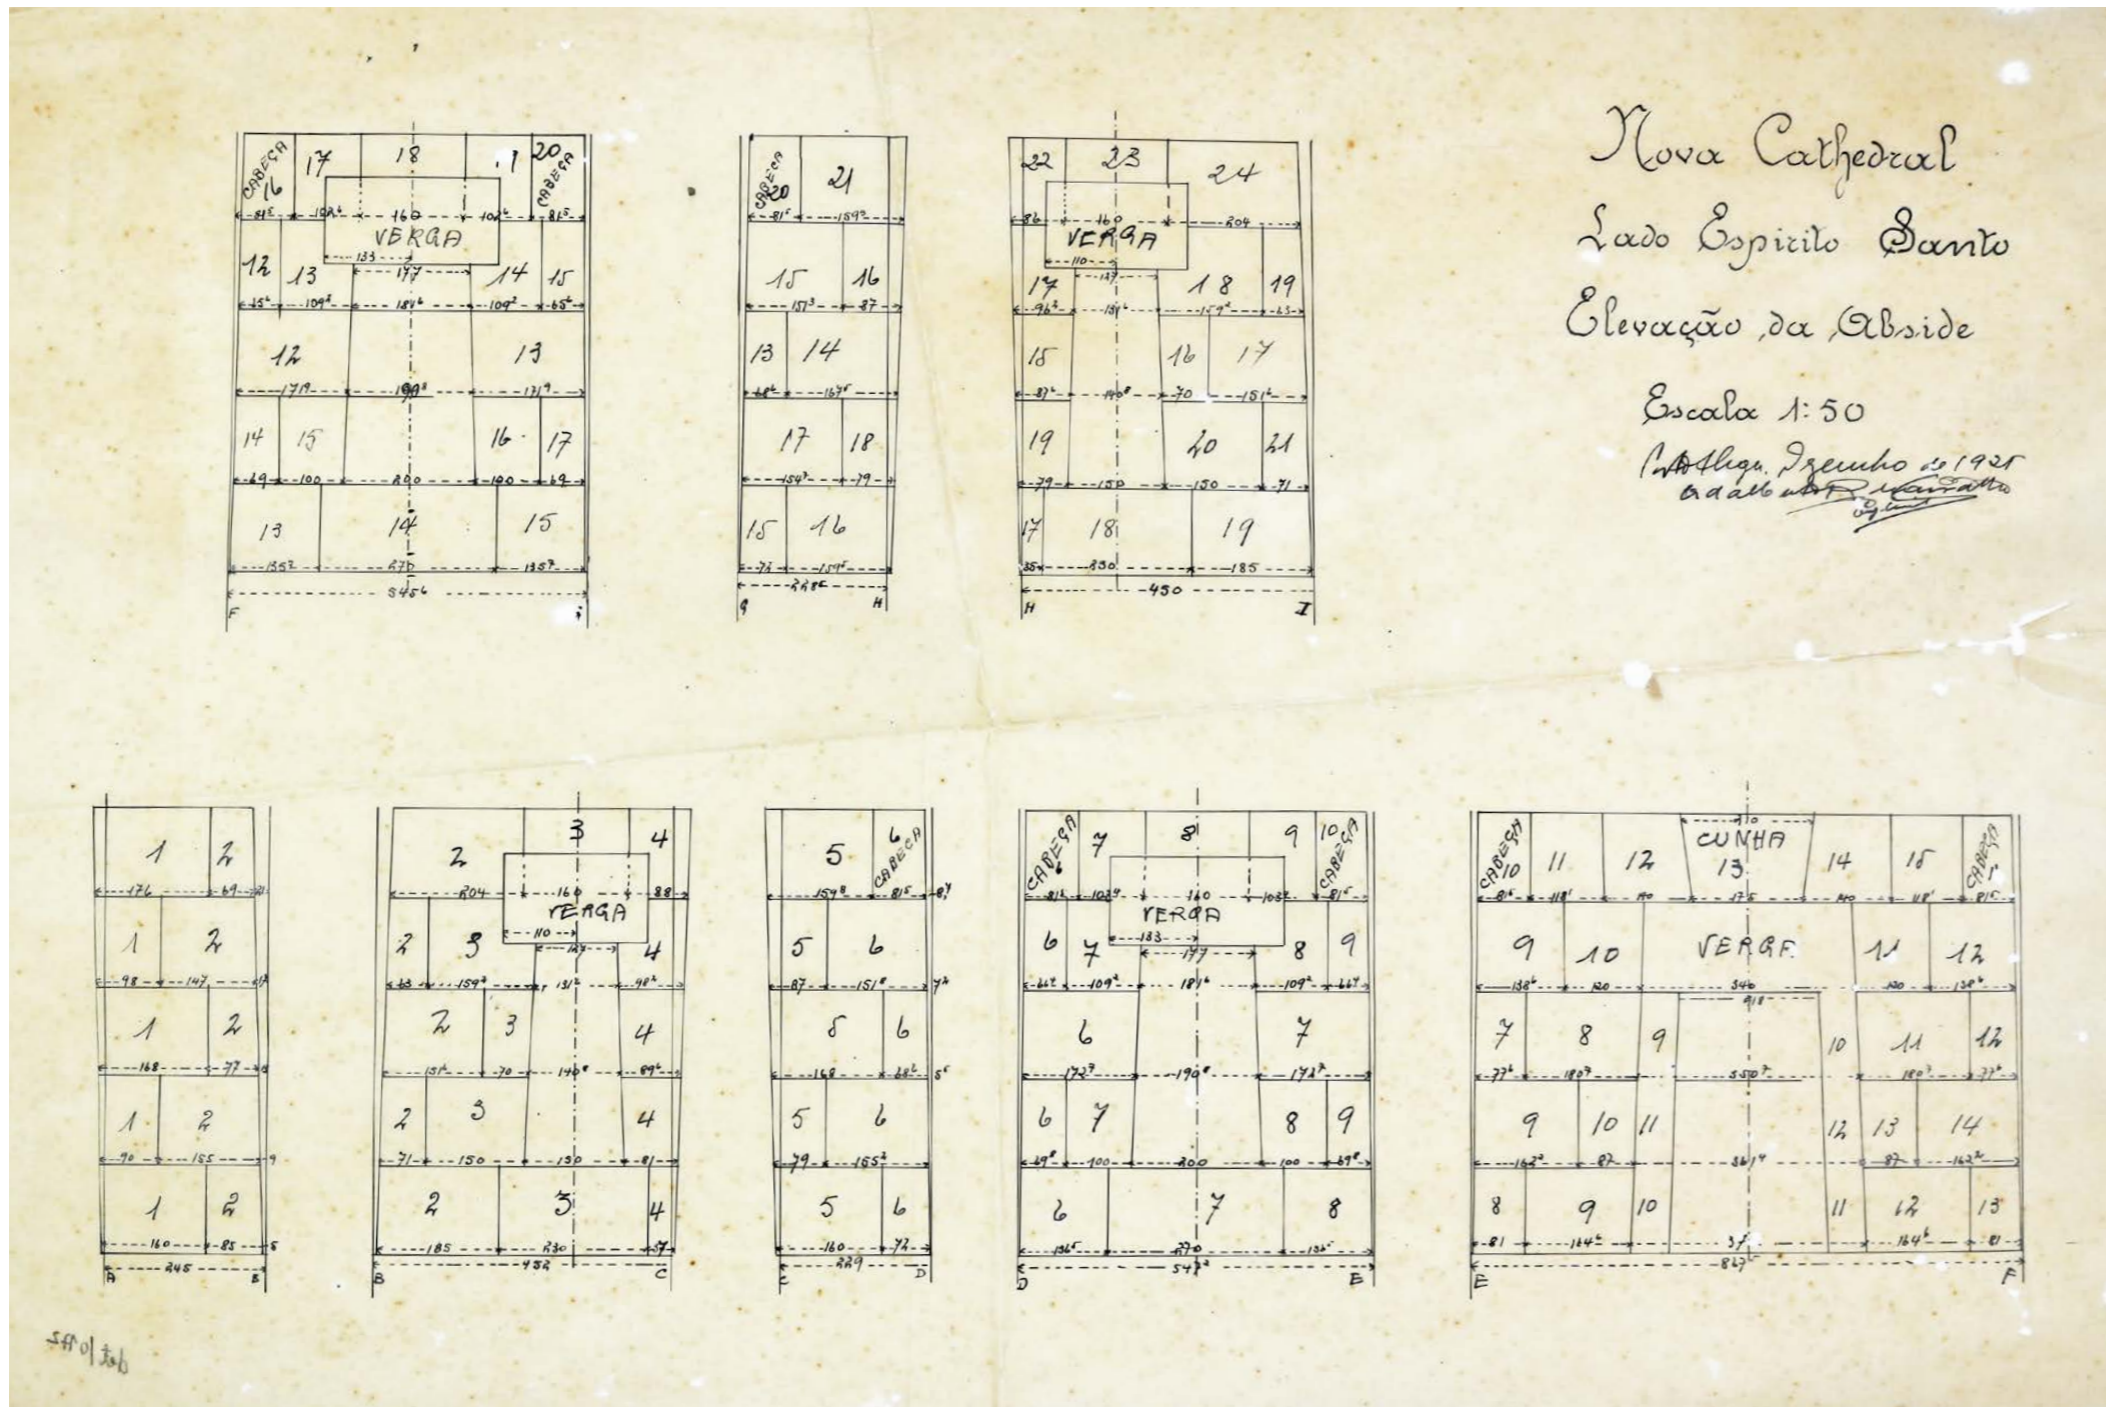 Nova Cathedral
Lado Espirito Santo
Elevação da Abside
Escala 1:50
de 1925
CABEÇA 16 17 18 20 CABEÇA
160
VERGA
133 177
12 13 14 15
65⁶ 109² 181⁶ 109² 65⁶
12 13
171⁹ 190⁸ 171⁹
14 15 16 17
69 100 200 100 69
13 14 15
135² 270 135²
545⁶
F
20 21
81⁵ 159²
15 16
151³ 87
13 14
68⁶ 167⁵
17 18
154² 79
15 16
72
G H
22 23 24
86 160 204
VERGA
110
17 18 19
96² 131⁶ 159² 63
15 16 17
87⁶ 140⁸ 70 151⁶
19 20 21
79 150 150 71
17 18 19
35 230 185
450
H I
1 2
176 69
1 2
98 147
1 2
168 77
1 2
90 155 9
1 2
160 85 5
245
A B
2 3 4
204 160 88
VERGA
110
2 3 4
63 159²
2 3 4
151⁶ 70 140⁸ 89⁶
2 3 4
71 150 150 81
2 3 4
185 230 37
452
B C
5 6 CABEÇA
159⁸ 81⁵
5 6
87 151⁸
5 6
168 68⁶
5 6
79 155²
5 6
160 72
229
D
CABEÇA 7 8 9 10 CABEÇA
VERGA
133 177
6 7 8 9
109² 181⁶ 109²
6 7
172⁷ 190⁸ 172⁷
6 7 8 9
69⁸ 100 200 100 69⁸
6 7 8
136⁵ 270 136⁵
D E
210
CABEÇA 10 11 12 CUNHA 13 14 15 CABEÇA
81⁵ 118¹ 140 175 140 118¹ 81⁵
9 10 11 12
138⁶ 120 340 120 138⁶
7 8 9 10 11 12
77⁶ 180⁷ 180⁷ 77⁶
9 10 11 12 13 14
162² 87 87 162²
8 9 10 11 12 13
81 164⁶ 164⁶ 81
E F